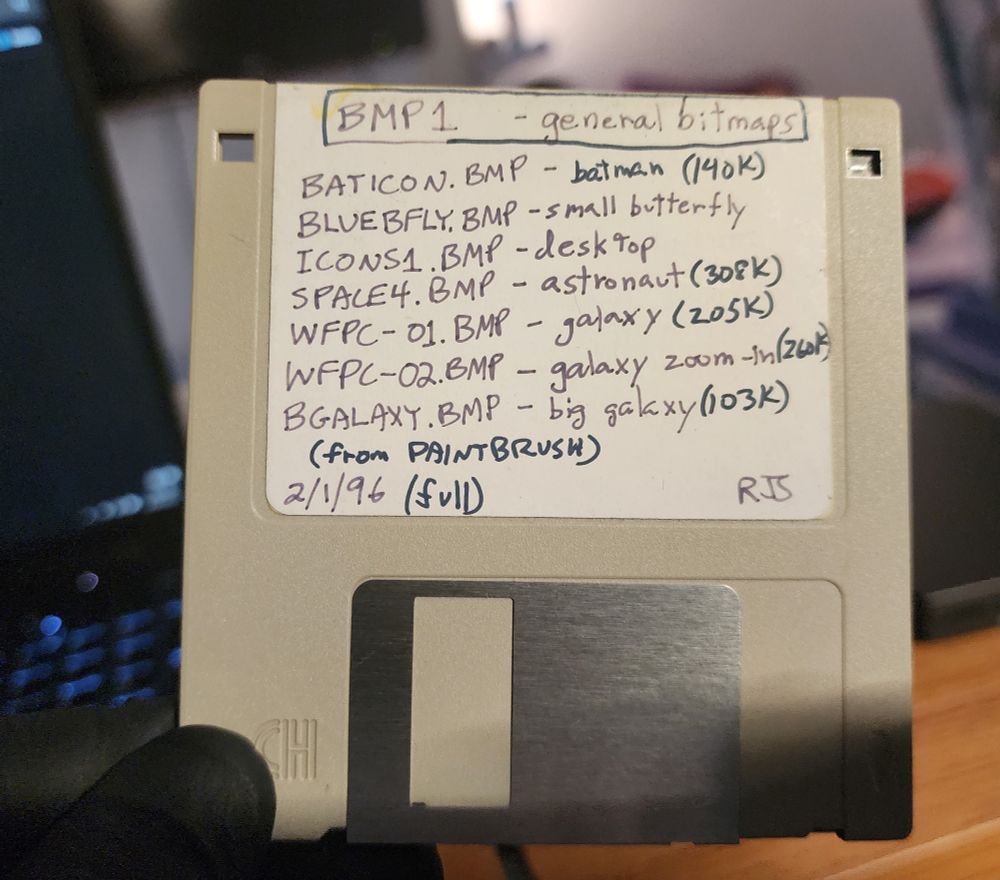 BMP1 - general bitmaps
BATICON.BMP - batman (140K)
BLUEBFLY.BMP - small butterfly
ICONS1.BMP - desktop
SPACE4.BMP - astronaut (308K)
WFPC-01.BMP - galaxy (205K)
WFPC-02.BMP - galaxy zoom-in (260K)
BGALAXY.BMP - big galaxy (103K)
(from PAINTBRUSH)
2/1/96 (full) RJS